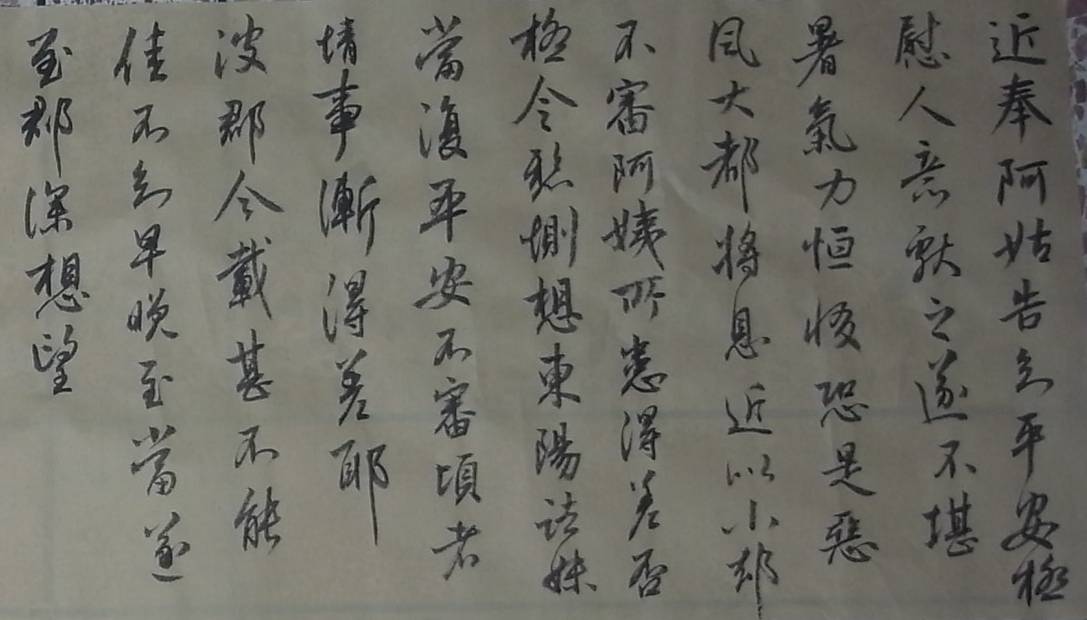 近奉阿姑告知平安極
慰人意獻之遂不堪
暑氣力恒惙恐是惡
風大都將息近以小却
不審阿姨所患得差否
極令懸惻想東陽諸妹
當復平安不審頃者
情事漸得差耶
彼郡今載甚不能
佳不知早晚至當遂
至郡深想望